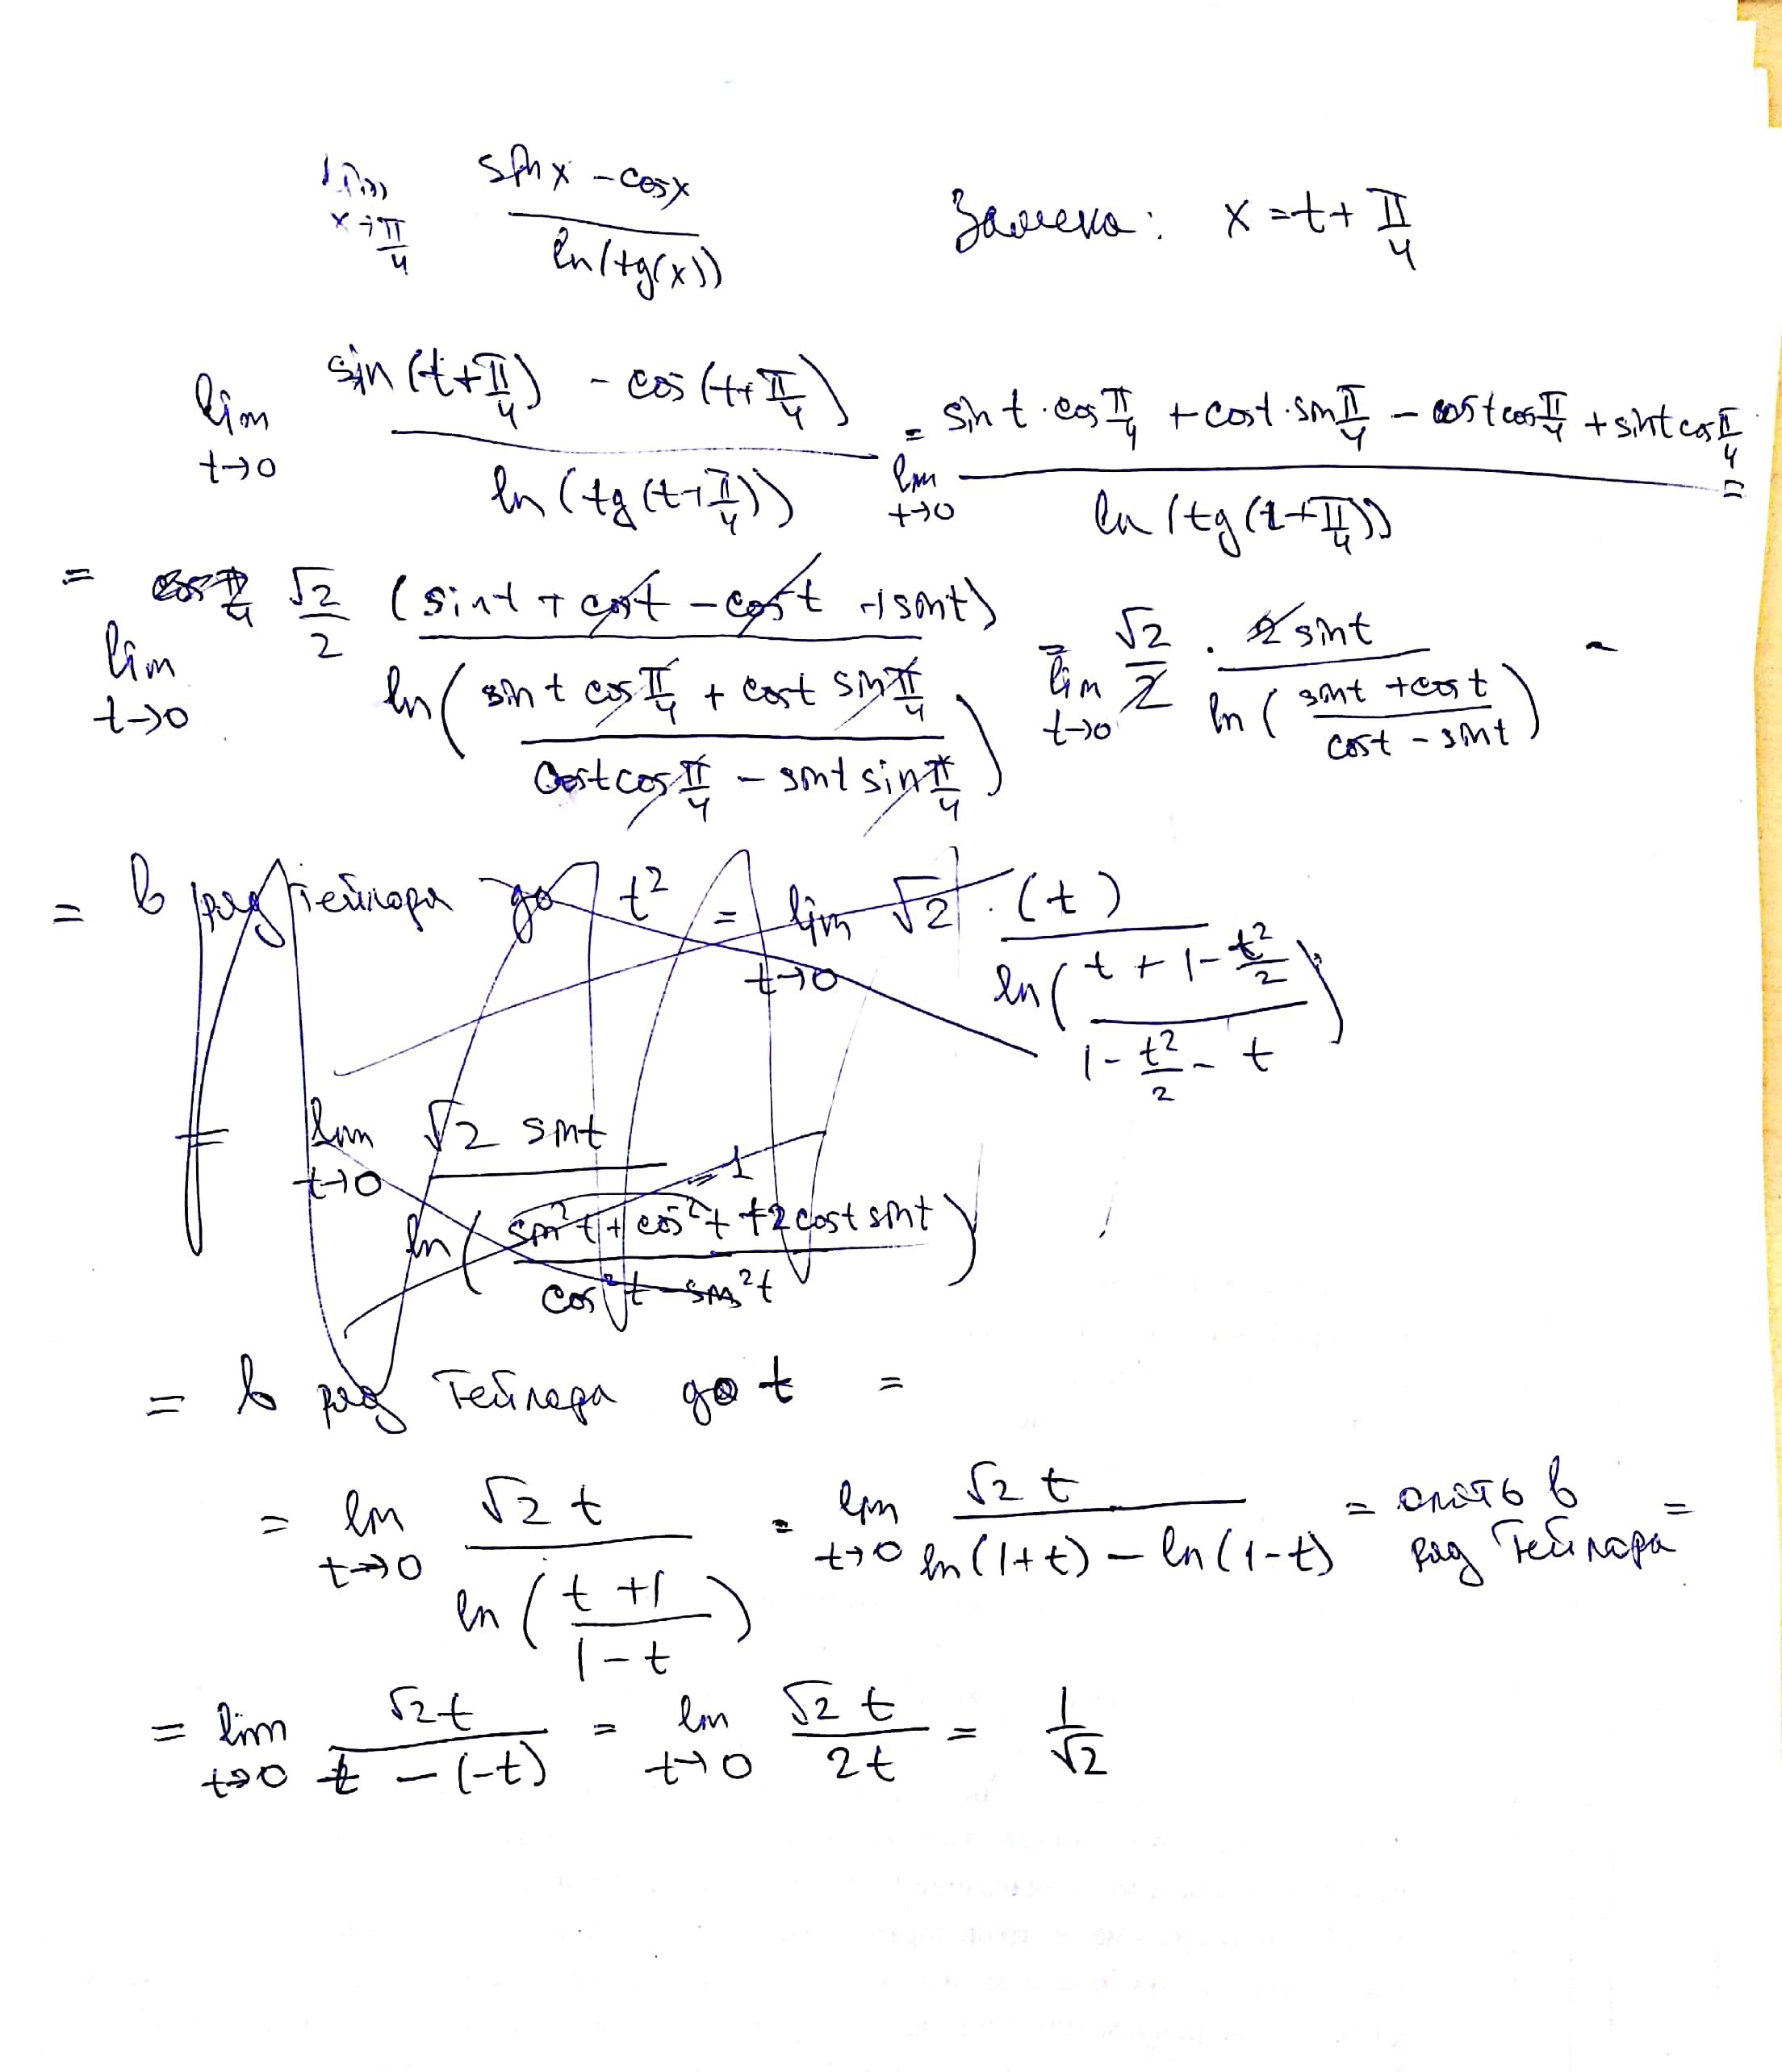 lim x→π/4 (sin x - cos x)/(ln(tg(x))) Замена: x = t + π/4
lim t→0 (sin(t+π/4) - cos(t+π/4))/(ln(tg(t+π/4))) = lim t→0 (sin t · cos π/4 + cos t · sin π/4 - cos t cos π/4 + sin t cos π/4)/(ln(tg(t+π/4))) =
= lim t→0 √2/2 (sin t + cos t - cos t + sin t)/(ln((sin t cos π/4 + cos t sin π/4)/(cos t cos π/4 - sin t sin π/4))) = lim t→0 √2/2 · 2 sin t/(ln((sin t + cos t)/(cos t - sin t))) =
= в ряд Тейлора до t² = lim t→0 √2 · (t)/(ln((t + 1 - t²/2)/(1 - t²/2 - t)))
= lim t→0 (√2 sin t)/(ln((sin² t + cos² t + 2 cos t sin t)/(cos² t - sin² t))) = 1
= в ряд Тейлора до t =
= lim t→0 (√2 t)/(ln((t + 1)/(1 - t))) = lim t→0 (√2 t)/(ln(1+t) - ln(1-t)) = опять в ряд Тейлора =
= lim t→0 (√2 t)/(t - (-t)) = lim t→0 (√2 t)/(2t) = 1/√2